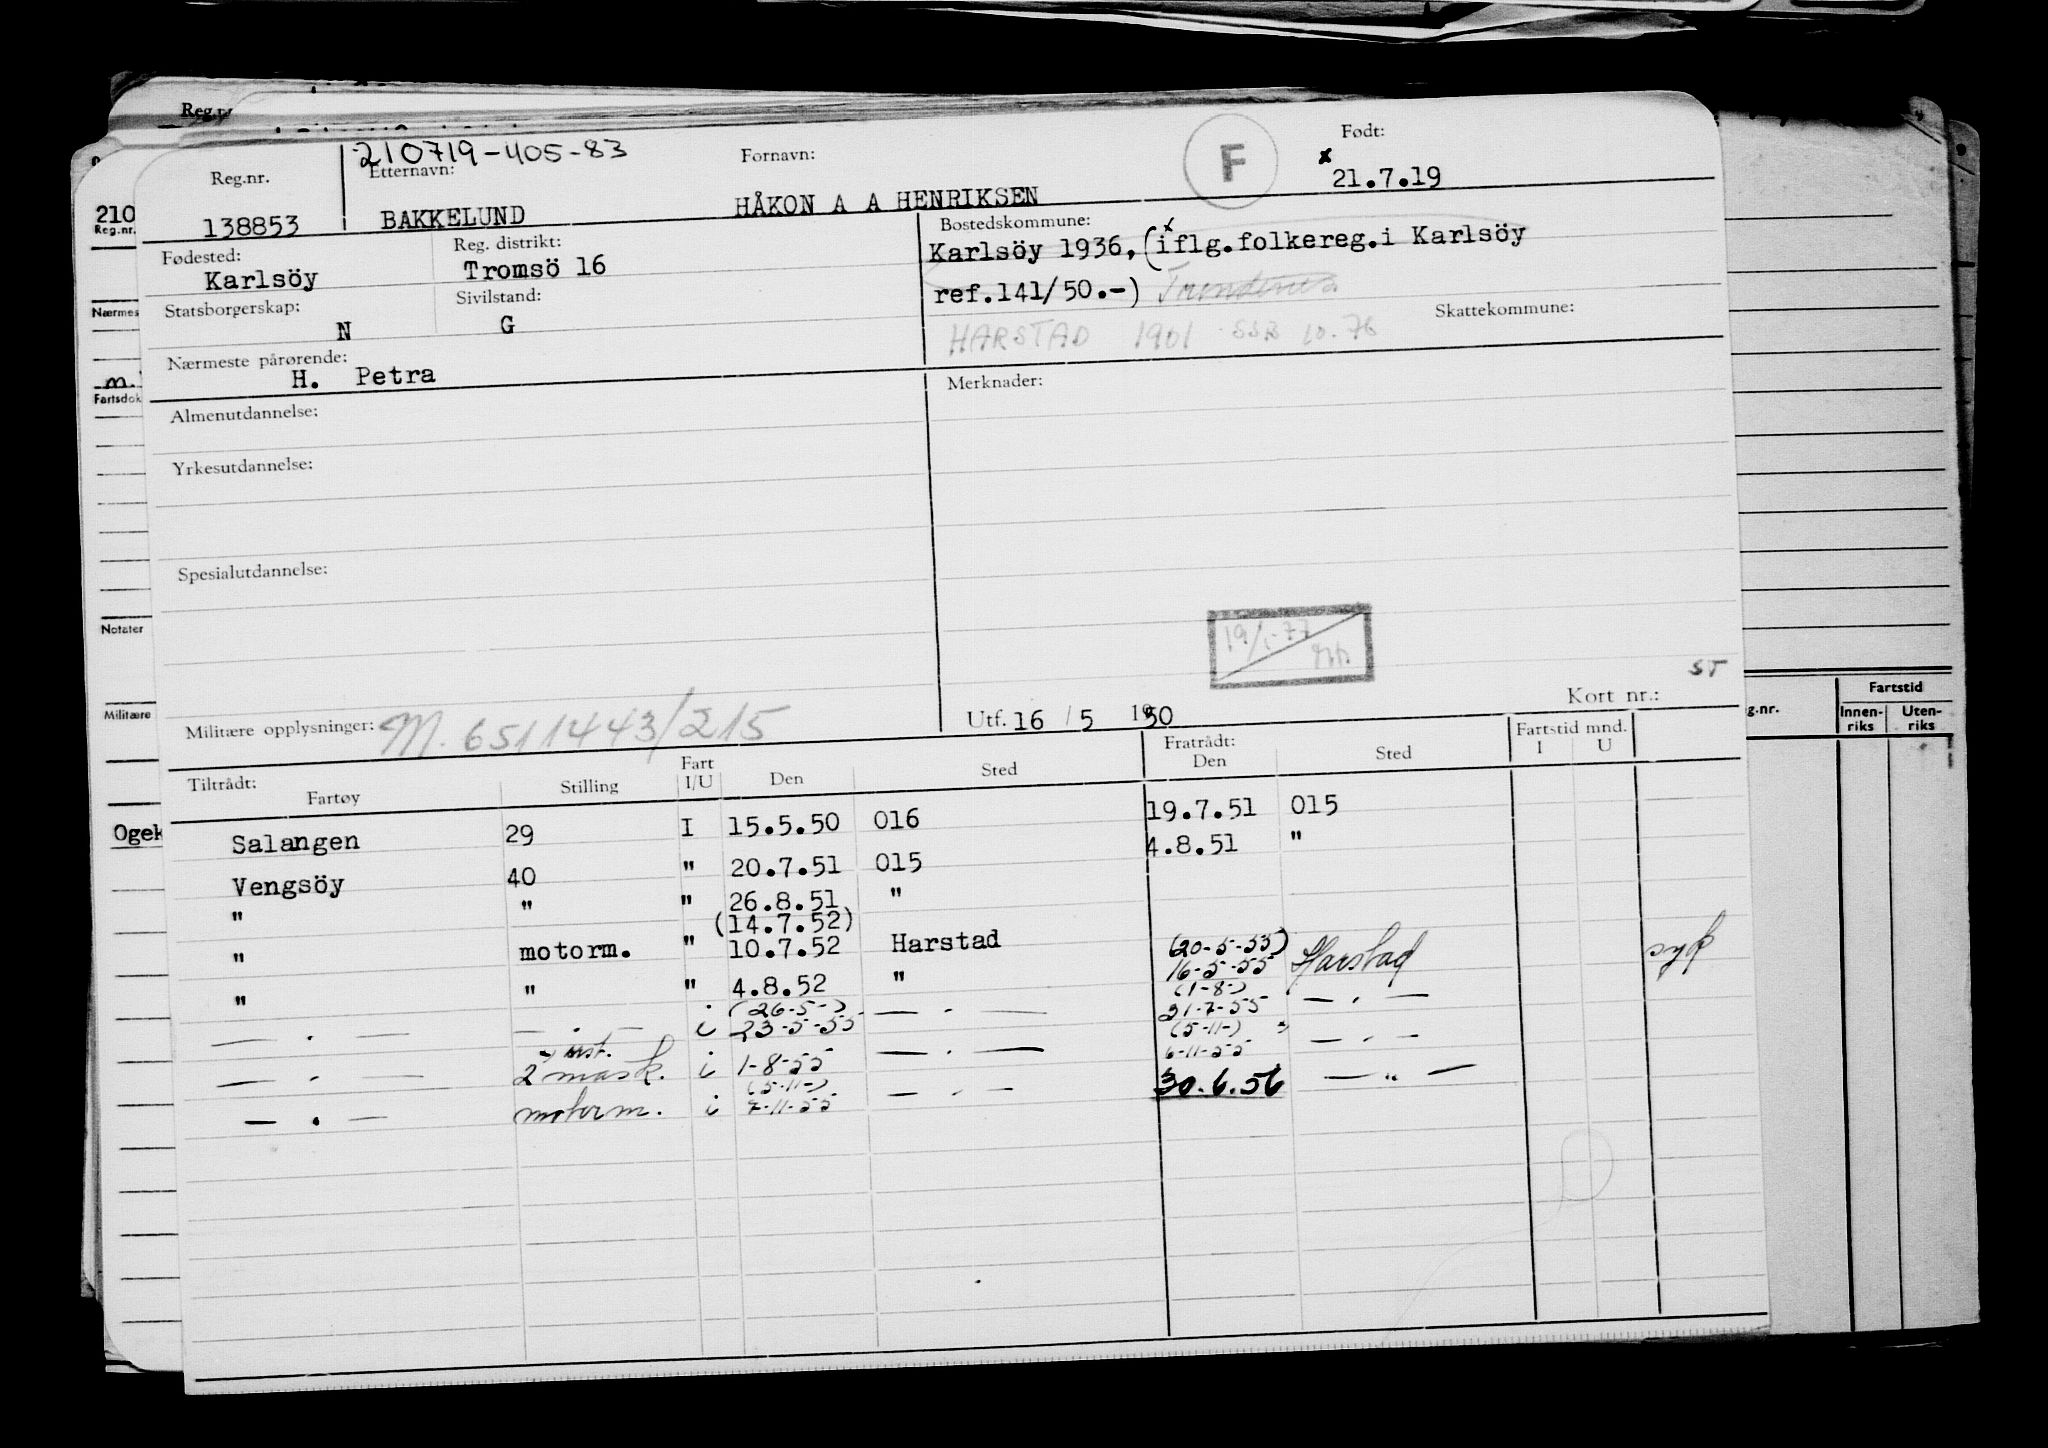 Reg.nr
210719-405-83
Reg.nr. Etternavn: Fornavn: F Født:
138853 BAKKELUND HÅKON A A HENRIKSEN x 21.7.19
Fødested: Reg. distrikt: Bostedskommune:
Karlsöy Tromsö 16 Karlsöy 1936, (iflg.folkereg.i Karlsöy
ref.141/50.-)
Statsborgerskap: Sivilstand: Skattekommune:
N G HARSTAD 1901 SSB 10.76
Nærmeste pårørende:
H. Petra
Almenutdannelse: Merknader:
Yrkesutdannelse:
Spesialutdannelse:
19/1-77
ST
Militære opplysninger: M. 6511443/215 Utf. 16 / 5 1950 Kort nr.:
Tiltrådt: Fratrådt: Fartstid mnd.
Fartøy Stilling Fart I/U Den Sted Den Sted I U
Salangen 29 I 15.5.50 016 19.7.51 015
Vengsöy 40 " 20.7.51 015 4.8.51 "
" " " 26.8.51 "
(14.7.52)
" motorm. " 10.7.52 Harstad (20-5-55) 16-5-55 Harstad syk
" " " 4.8.52 " (1-8-) 31-7-55 — " —
— " — — " — i (26-5-) 23-5-55 — " — (5-11-) 6-11-55 — " —
— " — 2 mask. i 1-8-55 — " —
— " — motorm. i (5-11-) 7-11-55 — " — 30.6.56 — " —
210
Reg.nr.
Nærmes
m.
Fartsdok
Notater
Militære
Ogek
g.nr.
Fartstid
Innen-riks Uten-riks